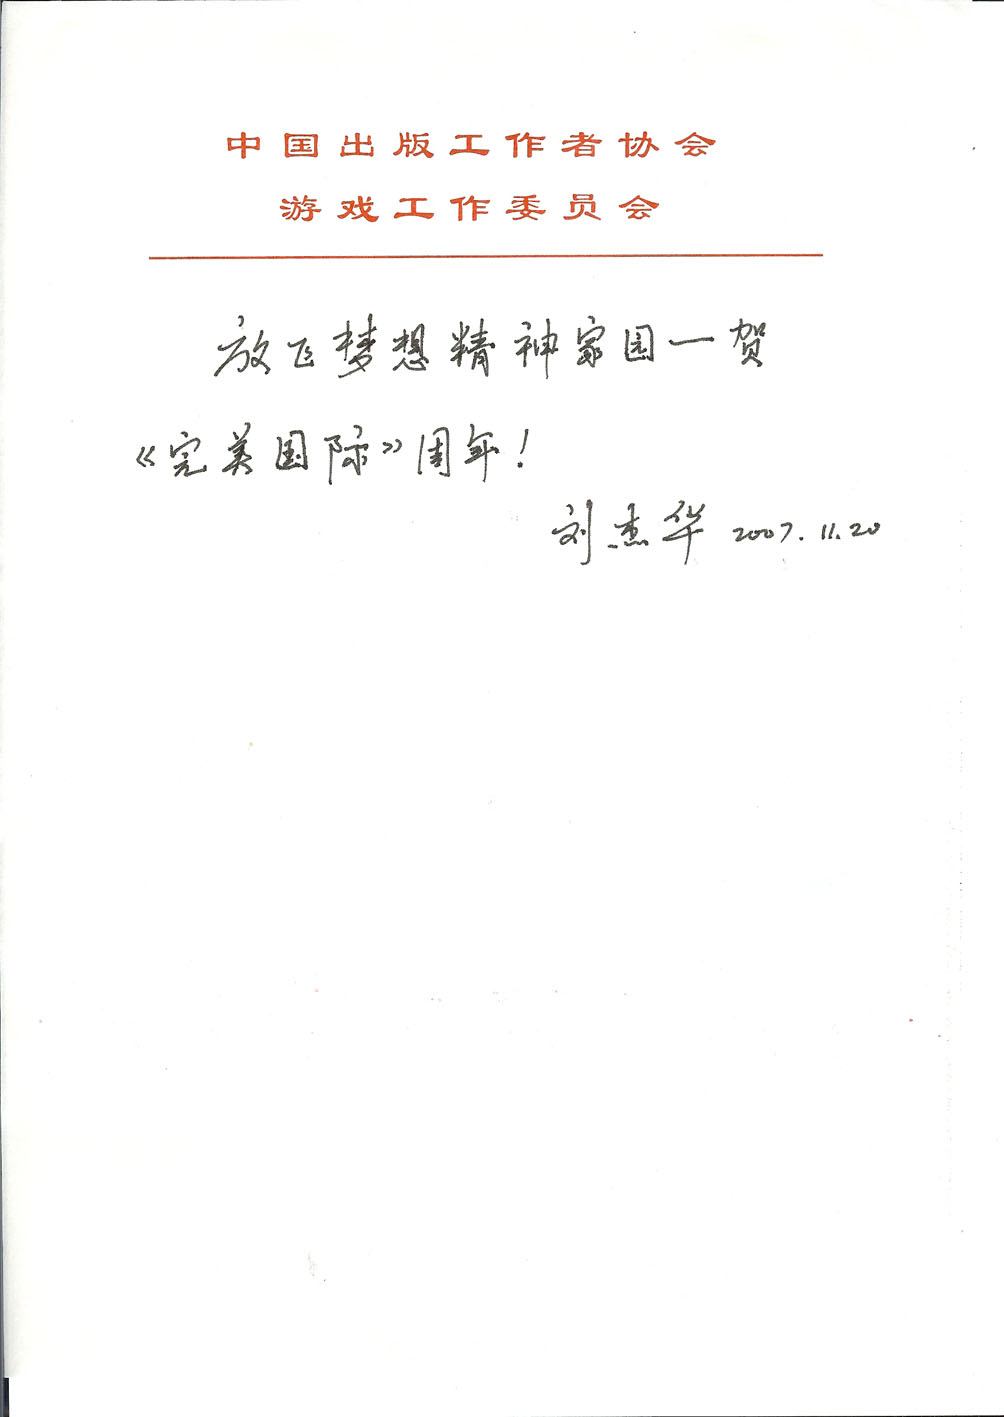 中国出版工作者协会
游戏工作委员会
放飞梦想精神家园一贺
《完美国际》周年!
刘杰华 2007.11.20